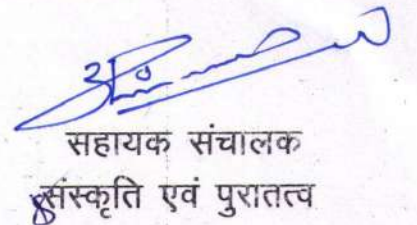 सहायक संचालक
संस्कृति एवं पुरातत्व